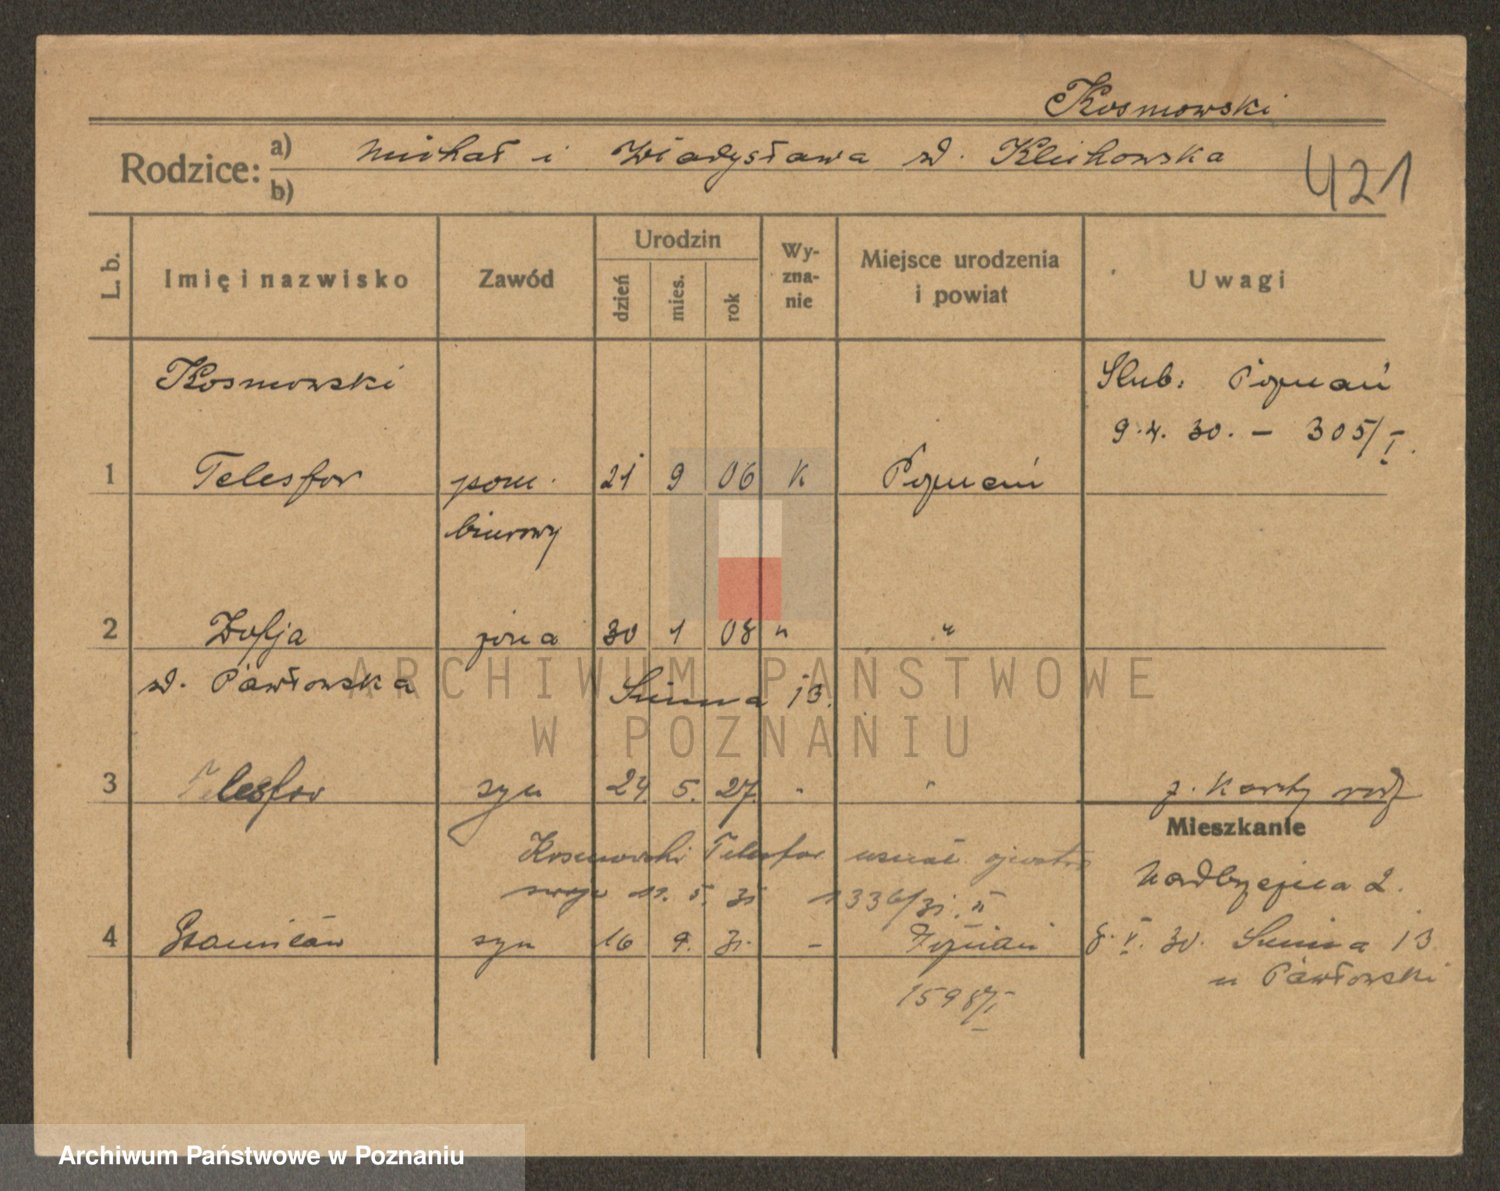 Kosmowski
Rodzice: a) Michał i Władysława z d. Klichowska
b)
421
L. b. Imię i nazwisko Zawód Urodzin dzień mies. rok Wy-zna-nie Miejsce urodzenia i powiat Uwagi
Kosmowski Ślub: Poznań
9.4. 30. – 305/I.
1 Telesfor pom. 21 9 06 K Poznań
biurowy
2 Zofja żona 30 1 08 " "
z d. Pawłowska Zimna 13.
3 Telesfor syn 24 5. 27. " " z. Karty rodz
Mieszkanie
Kosmowski Telesfor
Nadbrzeżna 2.
11. 5. 31 1336/31. II
4 Stanisław syn 16 9. 31. – Poznań 8. V. 30. Zimna 13
u Pawłowski
1598/I
ARCHIWUM PAŃSTWOWE
W POZNANIU
Archiwum Państwowe w Poznaniu